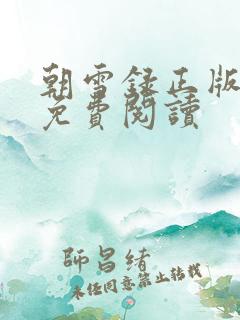 朝雪錄正版
免費閱讀
師昌緒
未经同意禁止转载